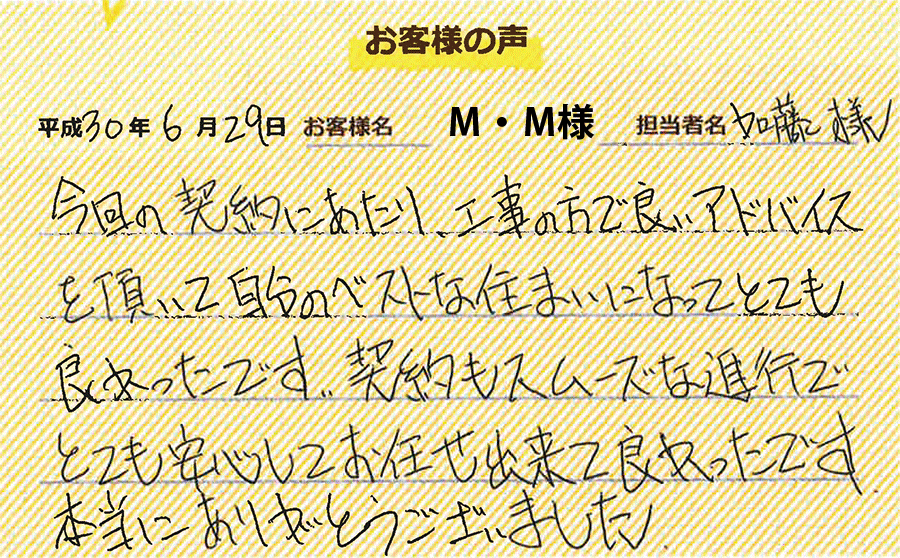 お客様の声
平成30年6月29日 お客様名 M・M様 担当者名 加藤様
今回の契約にあたり、工事の方で良いアドバイス
を頂いて自分のベストな住まいになってとても
良かったです。契約もスムーズな進行で
とても安心してお任せ出来て良かったです
本当にありがとうございました